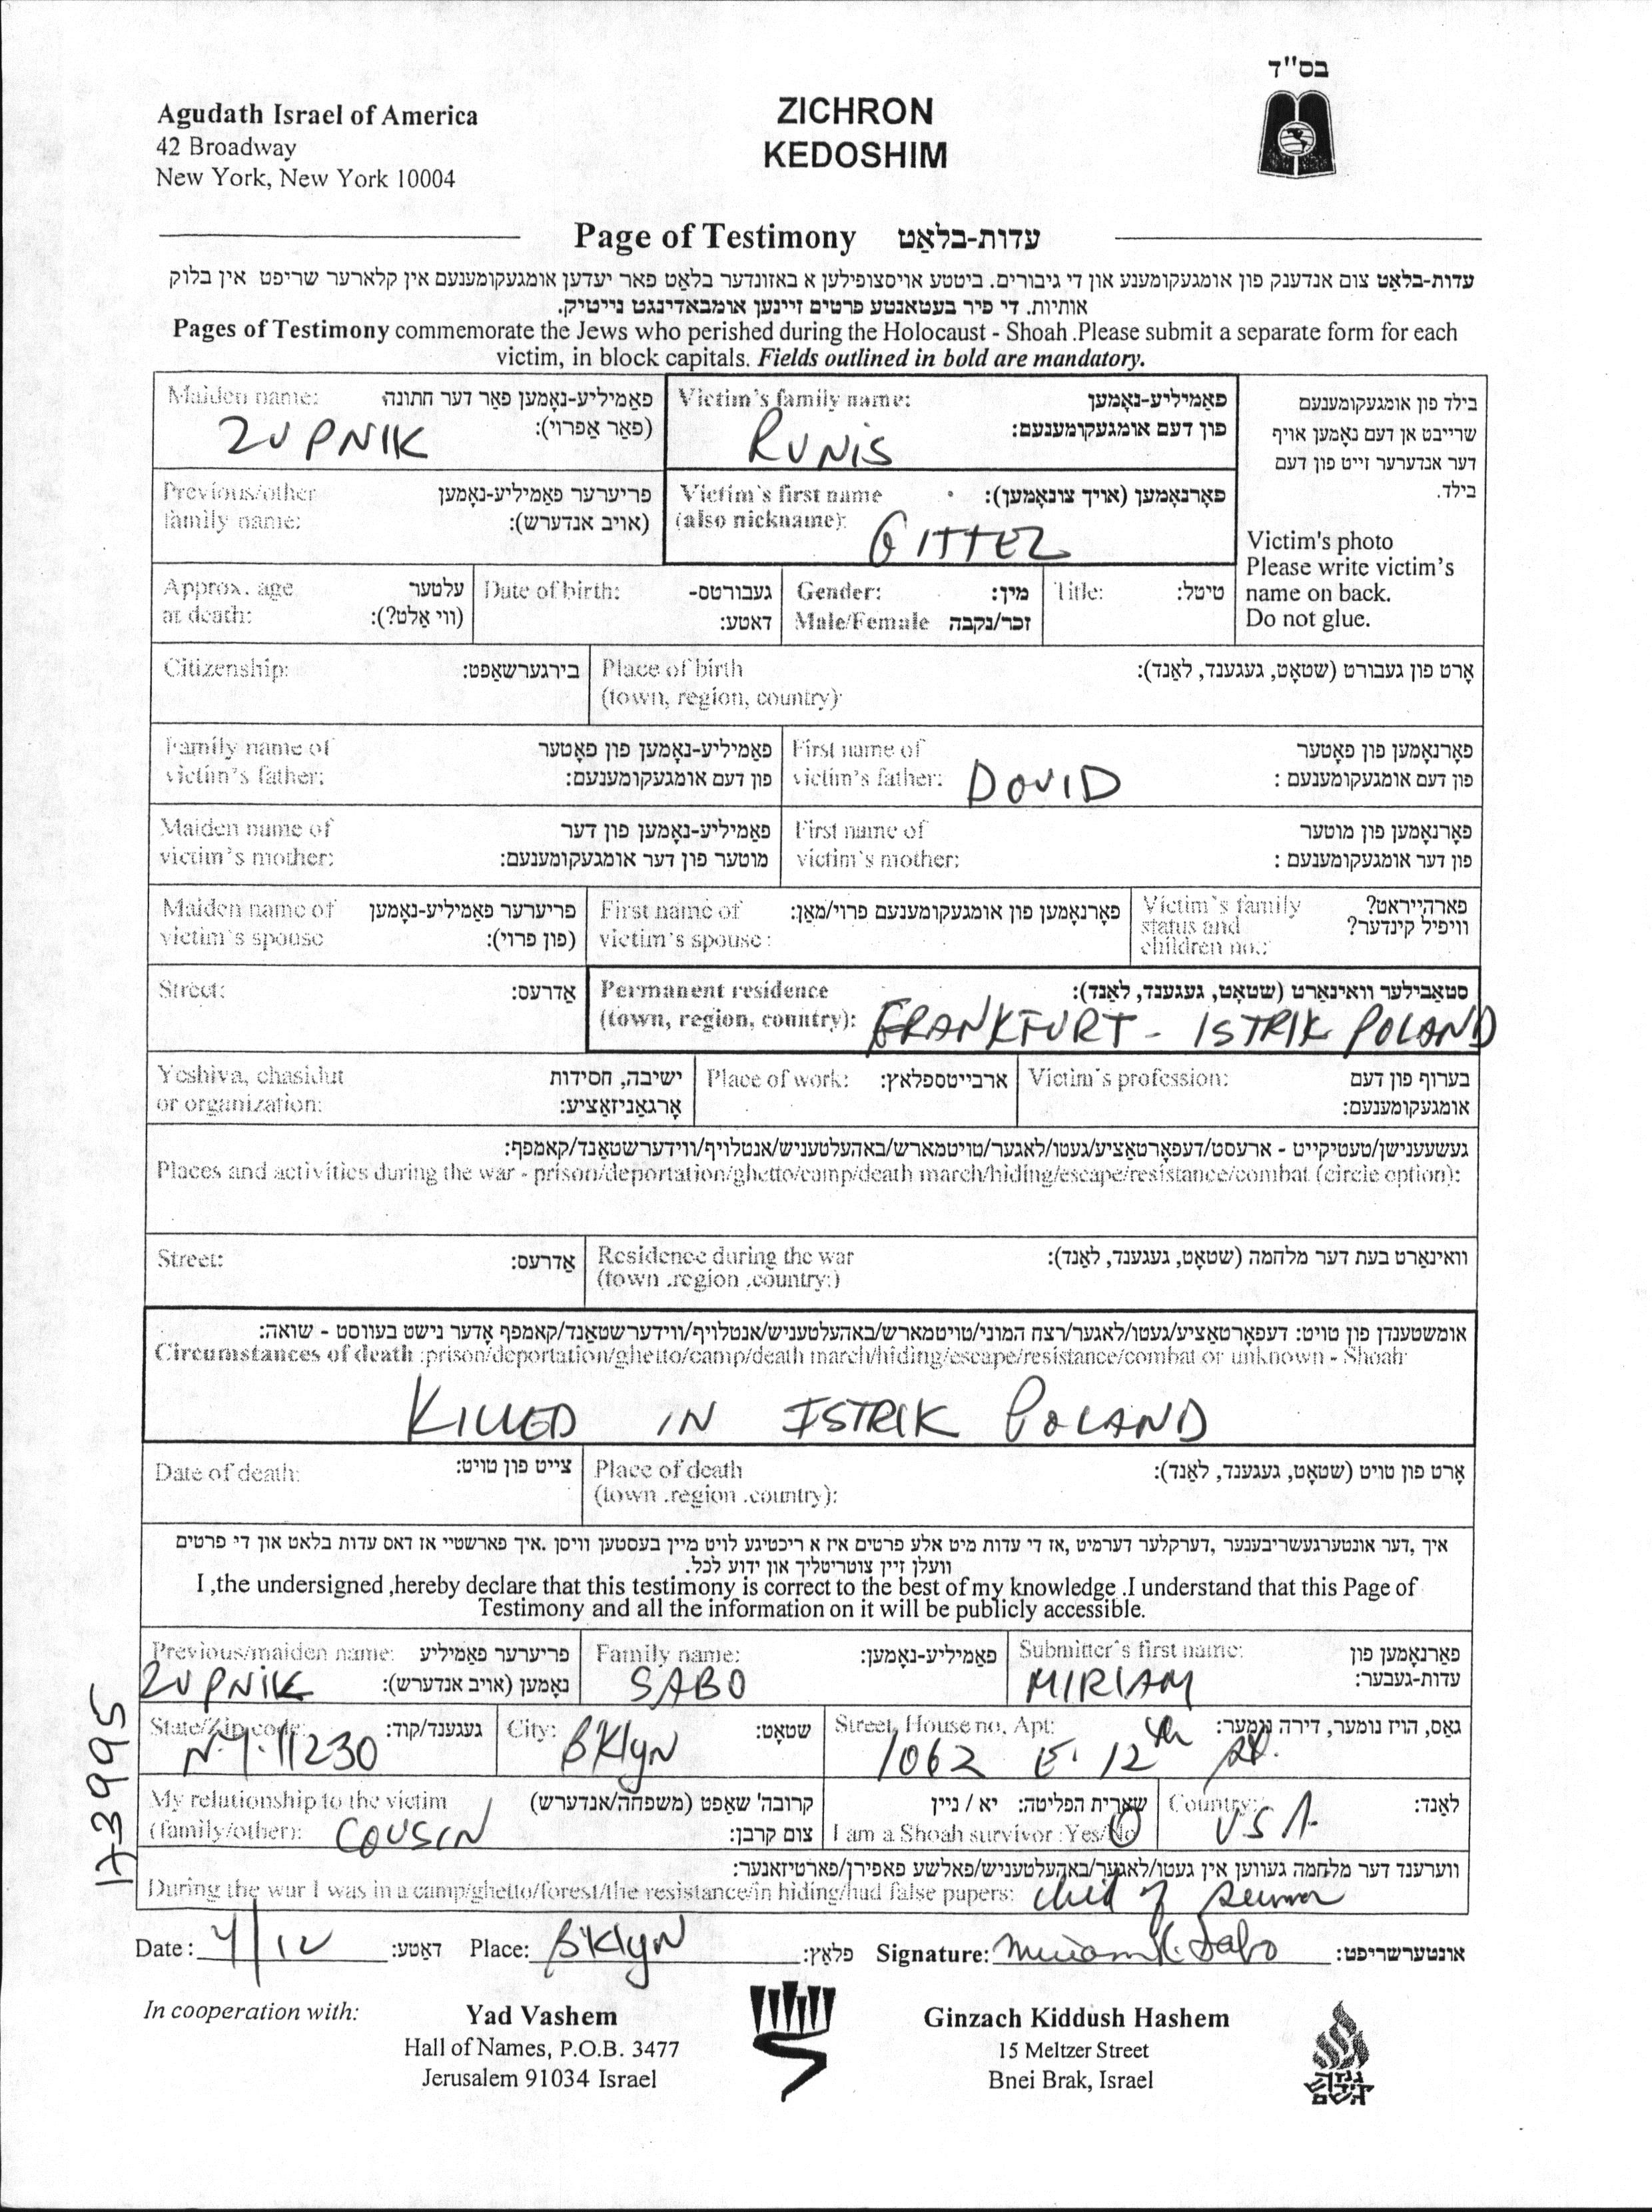 בס"ד
Agudath Israel of America
42 Broadway
New York, New York 10004
ZICHRON
KEDOSHIM
Page of Testimony עדות-בלאַט
עדות-בלאַט צום אנדענק פון אומגעקומענע און די גיבורים. ביטטע אויסצופילען א באזונדער בלאַט פאר יעדען אומגעקומענעם אין קלארער שריפט אין בלוק
אותיות. די פיר בעטאנטע פרטים זיינען אומבאדינגט נייטיק.
Pages of Testimony commemorate the Jews who perished during the Holocaust - Shoah .Please submit a separate form for each
victim, in block capitals. Fields outlined in bold are mandatory.
Maiden name: פאַמיליע-נאָמען פאַר דער חתונה
(פאַר אַפרוי):
ZUPNIK
Victim's family name: פאַמיליע-נאָמען
פון דעם אומגעקומענעם:
RUNIS
בילד פון אומגעקומענעם
שרייבט אן דעם נאָמען אויף
דער אנדערער זייט פון דעם
בילד.
Previous/other פריערער פאַמיליע-נאָמען
family name: (אויב אנדערש):
Victim's first name פאָרנאָמען (אויך צונאָמען):
(also nickname):
GITTEL
Victim's photo
Please write victim's
name on back.
Do not glue.
Approx. age עלטער
at death: (ווי אַלט?):
Date of birth: געבורטס-
דאטע:
Gender: מין:
Male/Female זכר/נקבה
Title: טיטל:
Citizenship: בירגערשאַפט:
Place of birth אָרט פון געבורט (שטאָט, געגענד, לאַנד):
(town, region, country)
Family name of פאַמיליע-נאָמען פון פאָטער
victim's father: פון דעם אומגעקומענעם:
First name of פאָרנאָמען פון פאָטער
victim's father: פון דעם אומגעקומענעם :
DOVID
Maiden name of פאַמיליע-נאָמען פון דער
victim's mother: מוטער פון דער אומגעקומענעם:
First name of פאָרנאָמען פון מוטער
victim's mother: פון דער אומגעקומענעם :
Maiden name of פריערער פאַמיליע-נאָמען
victim's spouse (פון פרוי):
First name of פאָרנאָמען פון אומגעקומענעם פרוי/מאַן:
victim's spouse :
Victim's family פארהייראט?
status and וויפיל קינדער?
children no.:
Street: אַדרעס:
Permanent residence סטאַבילער וואוינאָרט (שטאָט, געגענד, לאַנד):
(town, region, country): FRANKFURT - ISTRIK POLAND
Yeshiva, chasidut ישיבה, חסידות
or organization: אָרגאַניזאַציע:
Place of work: ארבייטספלאץ:
Victim's profession: בערוף פון דעם
אומגעקומענעם:
געשעענישן/טעטיקייט - ארעסט/דעפאָרטאַציע/געטו/לאגער/טויטמארש/באהעלטעניש/אנטלויף/ווידערשטאַנד/קאמפף:
Places and activities during the war - prison/deportation/ghetto/camp/death march/hiding/escape/resistance/combat (circle option):
Street: אַדרעס:
Residence during the war וואוינארט בעת דער מלחמה (שטאָט, געגענד, לאַנד):
(town .region .country:)
אומשטענדן פון טויט: דעפאָרטאַציע/געטו/לאגער/רצח המוני/טויטמארש/באהעלטעניש/אנטלויף/ווידערשטאַנד/קאמפף אָדער נישט בעוואוסט - שואה:
Circumstances of death :prison/deportation/ghetto/camp/death march/hiding/escape/resistance/combat or unknown - Shoah
KILLED IN ISTRIK POLAND
Date of death: צייט פון טויט:
Place of death אָרט פון טויט (שטאָט, געגענד, לאַנד):
(town .region .country):
איך ,דער אונטערגעשריבענער ,דערקלער דערמיט ,אז די עדות מיט אלע פרטים איז א ריכטיגע לויט מיין בעסטען וויסן .איך פארשטיי אז דאס עדות בלאט און די פרטים
וועלן זיין צוטריטליך און ידוע לכל.
I ,the undersigned ,hereby declare that this testimony is correct to the best of my knowledge .I understand that this Page of
Testimony and all the information on it will be publicly accessible.
Previous/maiden name: פריערער פאַמיליע
נאָמען (אויב אנדערש):
ZUPNIK
Family name: פאַמיליע-נאָמען:
SABO
Submitter's first name: פאָרנאָמען פון
עדות-געבער:
MIRIAM
State/Zip code: געגענד/קוד:
N.Y. 11230
City: שטאָט:
BKlyN
Street, House no, Apt: גאַס, הויז נומער, דירה נומער:
1062 E. 12th St.
My relationship to the victim קרובה' שאַפט (משפחה/אנדערש)
(family/other): צום קרבן:
COUSIN
שארית הפליטה: יא / ניין
I am a Shoah survivor :Yes/No
Country: לאַנד:
USA
ווערענד דער מלחמה געווען אין געטו/לאגער/באַהעלטעניש/פאלשע פאפירן/פארטיזאנער:
During the war I was in a camp/ghetto/forest/the resistance/in hiding/had false papers: child of
Date: 4/12 דאַטע: Place: BKlyN פלאַץ: Signature: Miriam K. Sabo אונטערשריפט:
173995
In cooperation with:
Yad Vashem
Hall of Names, P.O.B. 3477
Jerusalem 91034 Israel
Ginzach Kiddush Hashem
15 Meltzer Street
Bnei Brak, Israel
גנזך
קידוש
השם